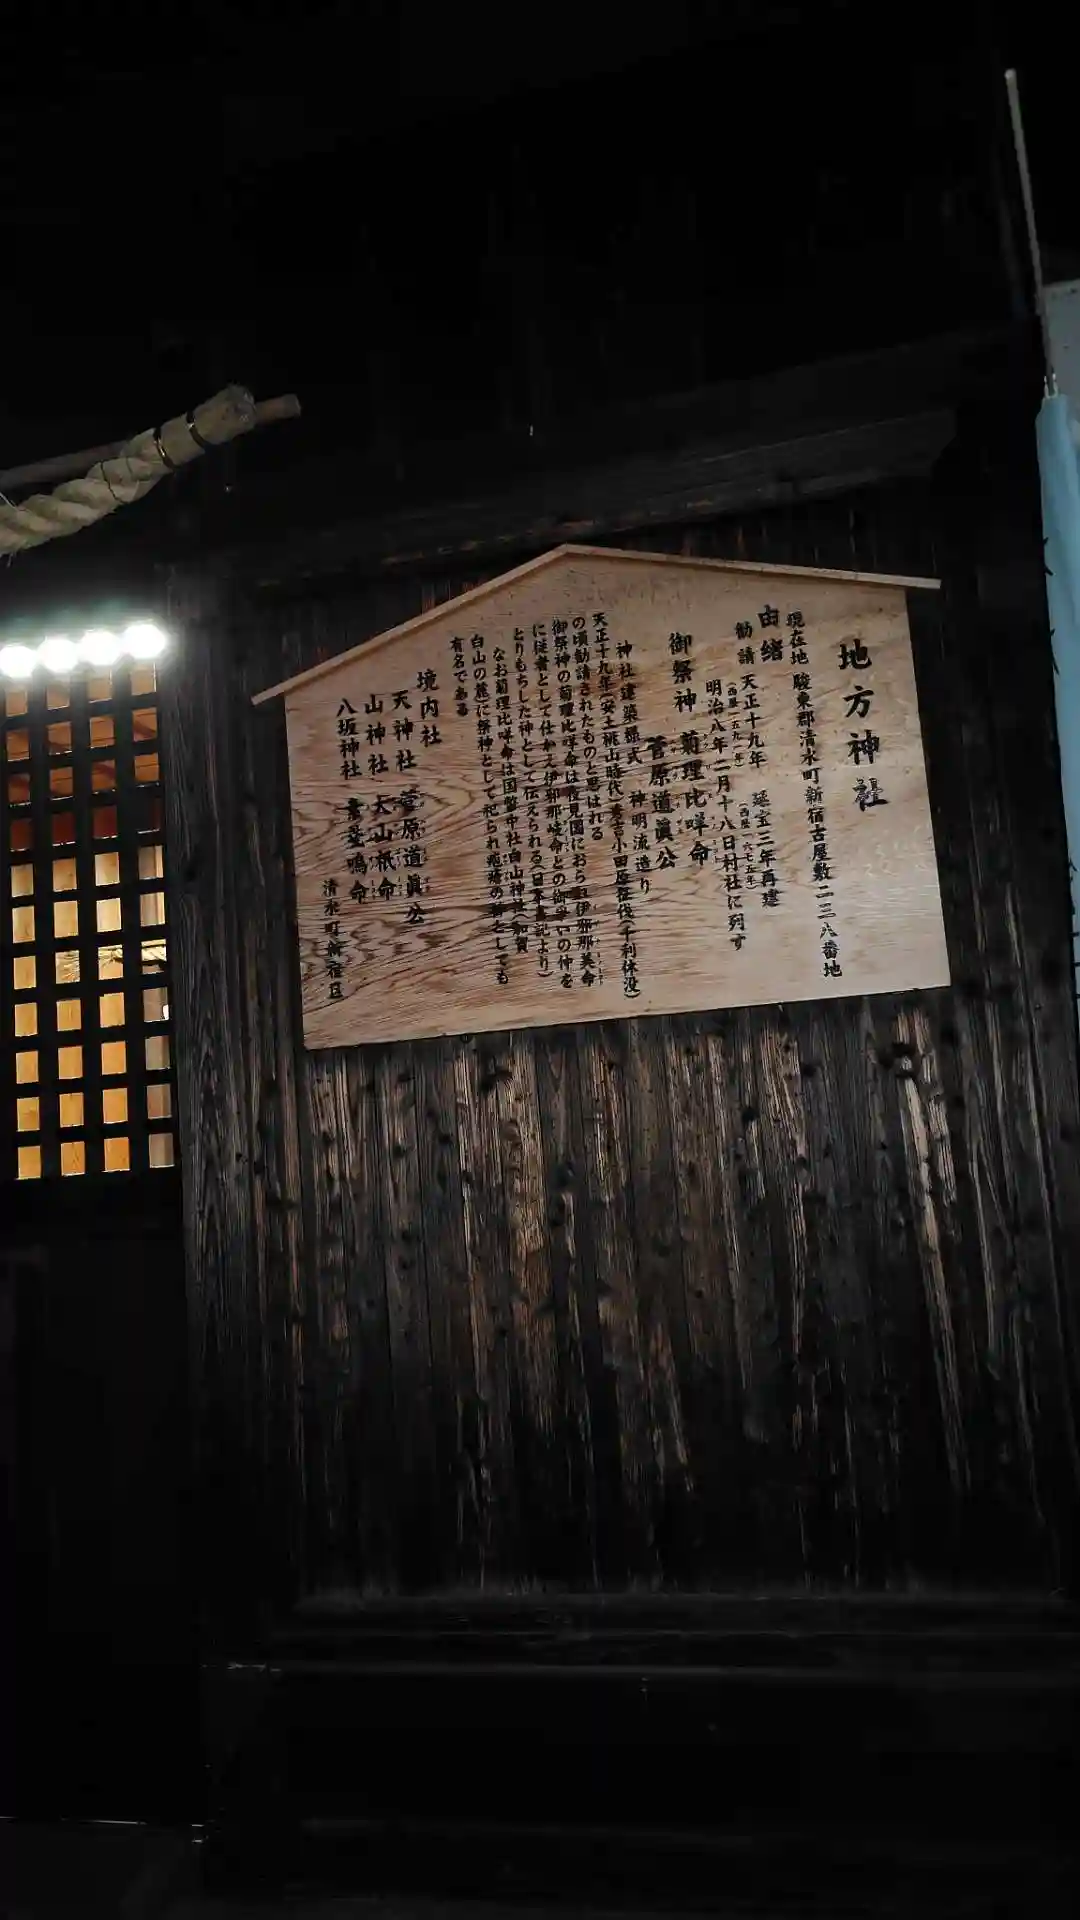 地方神社
現在地 駿東郡清水町新宿古屋敷二三八番地
由緒
勧請 天正十九年 延宝三年再建
(西暦一五九一年) (西暦一六七五年)
明治八年二月十八日村社に列す
御祭神 菊理比咩命
菅原道眞公
神社建築様式 神明流造り
天正十九年(安土桃山時代)秀吉小田原征伐(千利休没)
の頃勧請されたものと思はれる
御祭神の菊理比咩命は夜見国におら 伊邪那美命
に従者として仕かえ伊邪那岐命との御争いの仲を
とりもちした神として伝えられる(日本書記より)
なお菊理比咩命は国幣中社白山神社(加賀
白山の麓)に祭神として祀られ疱瘡の神としても
有名である
境内社
天神社 菅原道眞公
山神社 大山祇命
八坂神社 素盞鳴命
清水町新宿区